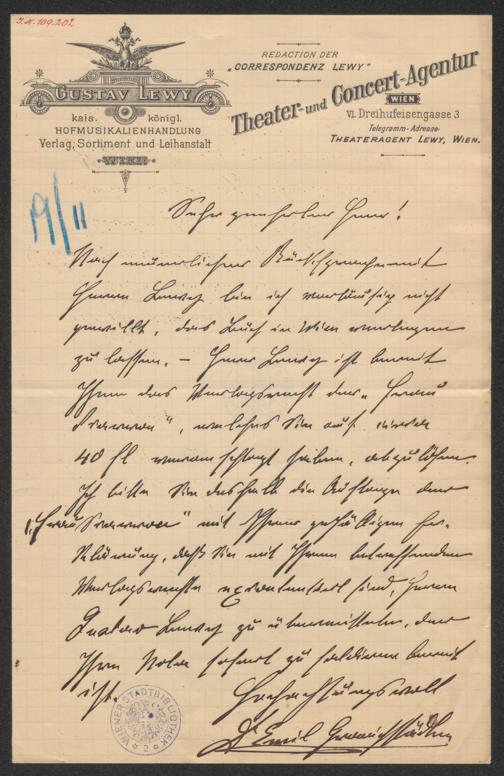 I.N. 109.202
GUSTAV LEWY
kais. königl.
HOFMUSIKALIENHANDLUNG
Verlag, Sortiment und Leihanstalt
WIEN
REDACTION DER
„CORRESPONDENZ LEWY“
Theater- und Concert-Agentur
WIEN
VI. Dreihufeisengasse 3
Telegramm-Adresse:
THEATERAGENT LEWY, WIEN.
19/11
Sehr geehrter Herr!
Nach mündlicher Rücksprache mit
Herrn Lewy bin ich vorläufig nicht
gewillt, das Buch in Wien verlegen
zu lassen. – Herr Lewy ist bereit
Ihnen das Verlagsrecht der „Frau
", welches Sie auf
40 fl veranschlagt haben, abzulösen.
Ich bitte Sie deshalb die Auflage der
„Frau " mit Ihrer gefälligen Er-
klärung, daß Sie mit Ihrem betreffenden
Verlagsrechte sind, Herrn
Gustav Lewy zu übermitteln, der
Ihre Nota sofort zu saldieren bereit
ist.
Hochachtungsvoll
Dr Emil
WIENER STADTBIBLIOTHEK